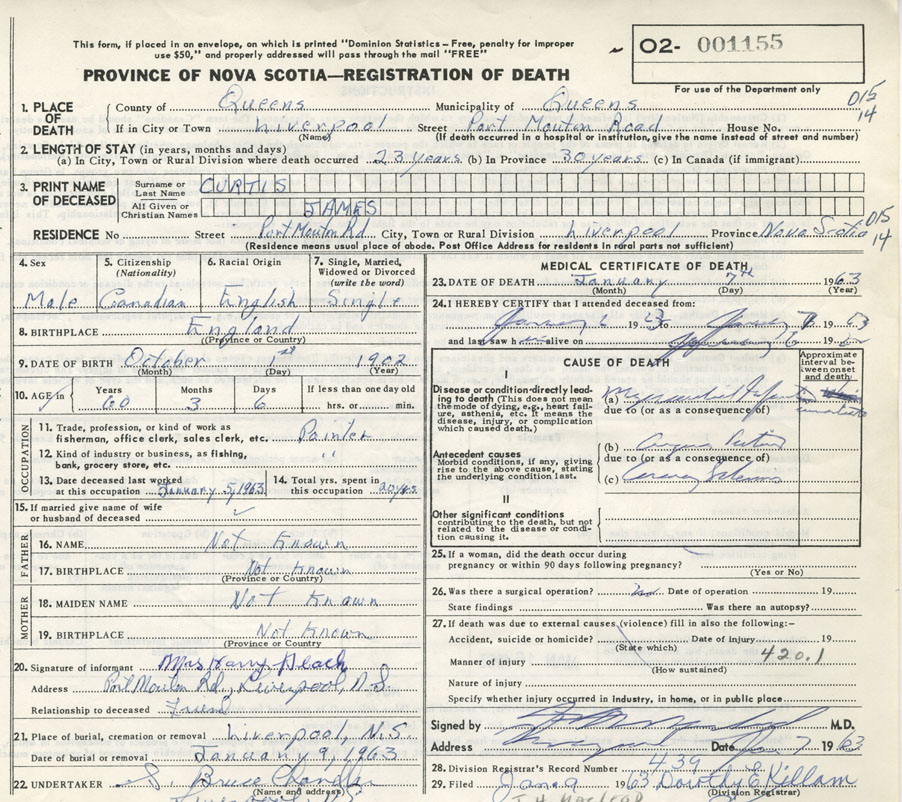 This form, if placed in an envelope, on which is printed "Dominion Statistics – Free, penalty for improper
use $50," and properly addressed will pass through the mail "FREE"
O2- 001155
PROVINCE OF NOVA SCOTIA—REGISTRATION OF DEATH
For use of the Department only
015
14
1. PLACE OF DEATH
County of Queens Municipality of Queens
If in City or Town Liverpool Street Port Mouton Road House No.
(Name) (If death occurred in a hospital or institution, give the name instead of street and number)
2. LENGTH OF STAY (in years, months and days)
(a) In City, Town or Rural Division where death occurred 23 years (b) In Province 30 years (c) In Canada (if immigrant)
3. PRINT NAME OF DECEASED
Surname or Last Name CURTIS
All Given or Christian Names JAMES
015
14
RESIDENCE No Street Port Mouton Rd City, Town or Rural Division Liverpool Province Nova Scotia
(Residence means usual place of abode. Post Office Address for residents in rural parts not sufficient)
4. Sex
Male
5. Citizenship
(Nationality)
Canadian
6. Racial Origin
English
7. Single, Married,
Widowed or Divorced
(write the word)
Single
8. BIRTHPLACE England
(Province or Country)
9. DATE OF BIRTH October 1st 1902
(Month) (Day) (Year)
10. AGE in
Years Months Days If less than one day old
60 3 6 hrs. or min.
OCCUPATION
11. Trade, profession, or kind of work as
fisherman, office clerk, sales clerk, etc. Painter
12. Kind of industry or business, as fishing,
bank, grocery store, etc. "
13. Date deceased last worked
at this occupation January 5, 1963
14. Total yrs. spent in
this occupation 20 yrs.
15. If married give name of wife
or husband of deceased
FATHER
16. NAME Not Known
17. BIRTHPLACE Not Known
(Province or Country)
MOTHER
18. MAIDEN NAME Not Known
19. BIRTHPLACE Not Known
(Province or Country)
20. Signature of informant Mrs Harry
Address Port Mouton Rd, Liverpool, N.S.
Relationship to deceased Friend
21. Place of burial, cremation or removal Liverpool, N.S.
Date of burial or removal January 9, 1963
22. UNDERTAKER S. Bruce
(Name and address)
MEDICAL CERTIFICATE OF DEATH
23. DATE OF DEATH January 7th 1963
(Month) (Day) (Year)
24. I HEREBY CERTIFY that I attended deceased from:
19 to 19 63
and last saw h alive on 19
CAUSE OF DEATH
Approximate
interval be-
tween onset
and death:
I
Disease or condition directly lead-
ing to death (This does not mean
the mode of dying, e.g., heart fail-
ure, asthenia, etc. It means the
disease, injury, or complication
which caused death.)
(a)
due to (or as a consequence of)
Antecedent causes
Morbid conditions, if any, giving
rise to the above cause, stating
the underlying condition last.
(b)
due to (or as a consequence of)
(c)
II
Other significant conditions
contributing to the death, but not
related to the disease or condi-
tion causing it.
25. If a woman, did the death occur during
pregnancy or within 90 days following pregnancy?
(Yes or No)
26. Was there a surgical operation? no Date of operation 19
State findings Was there an autopsy?
27. If death was due to external causes (violence) fill in also the following:-
Accident, suicide or homicide? Date of injury 19
(State which)
Manner of injury 420.1
(How sustained)
Nature of injury
Specify whether injury occurred in industry, in home, or in public place
Signed by M.D.
Address Date 7 19 63
28. Division Registrar's Record Number 439
29. Filed Jan 9 1963 Dorothy E Killam
(Division Registrar)